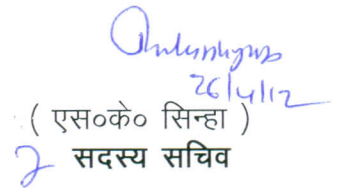 26/4/12
( एस०के० सिन्हा )
सदस्य सचिव